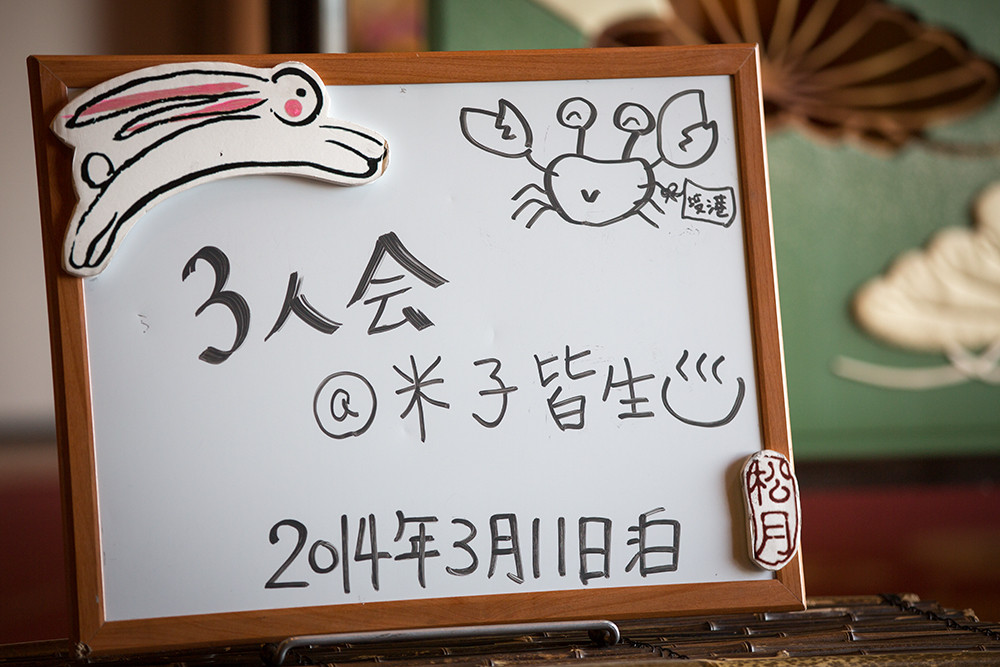 境港
3人会
@米子皆生
2014年3月11日泊
松月